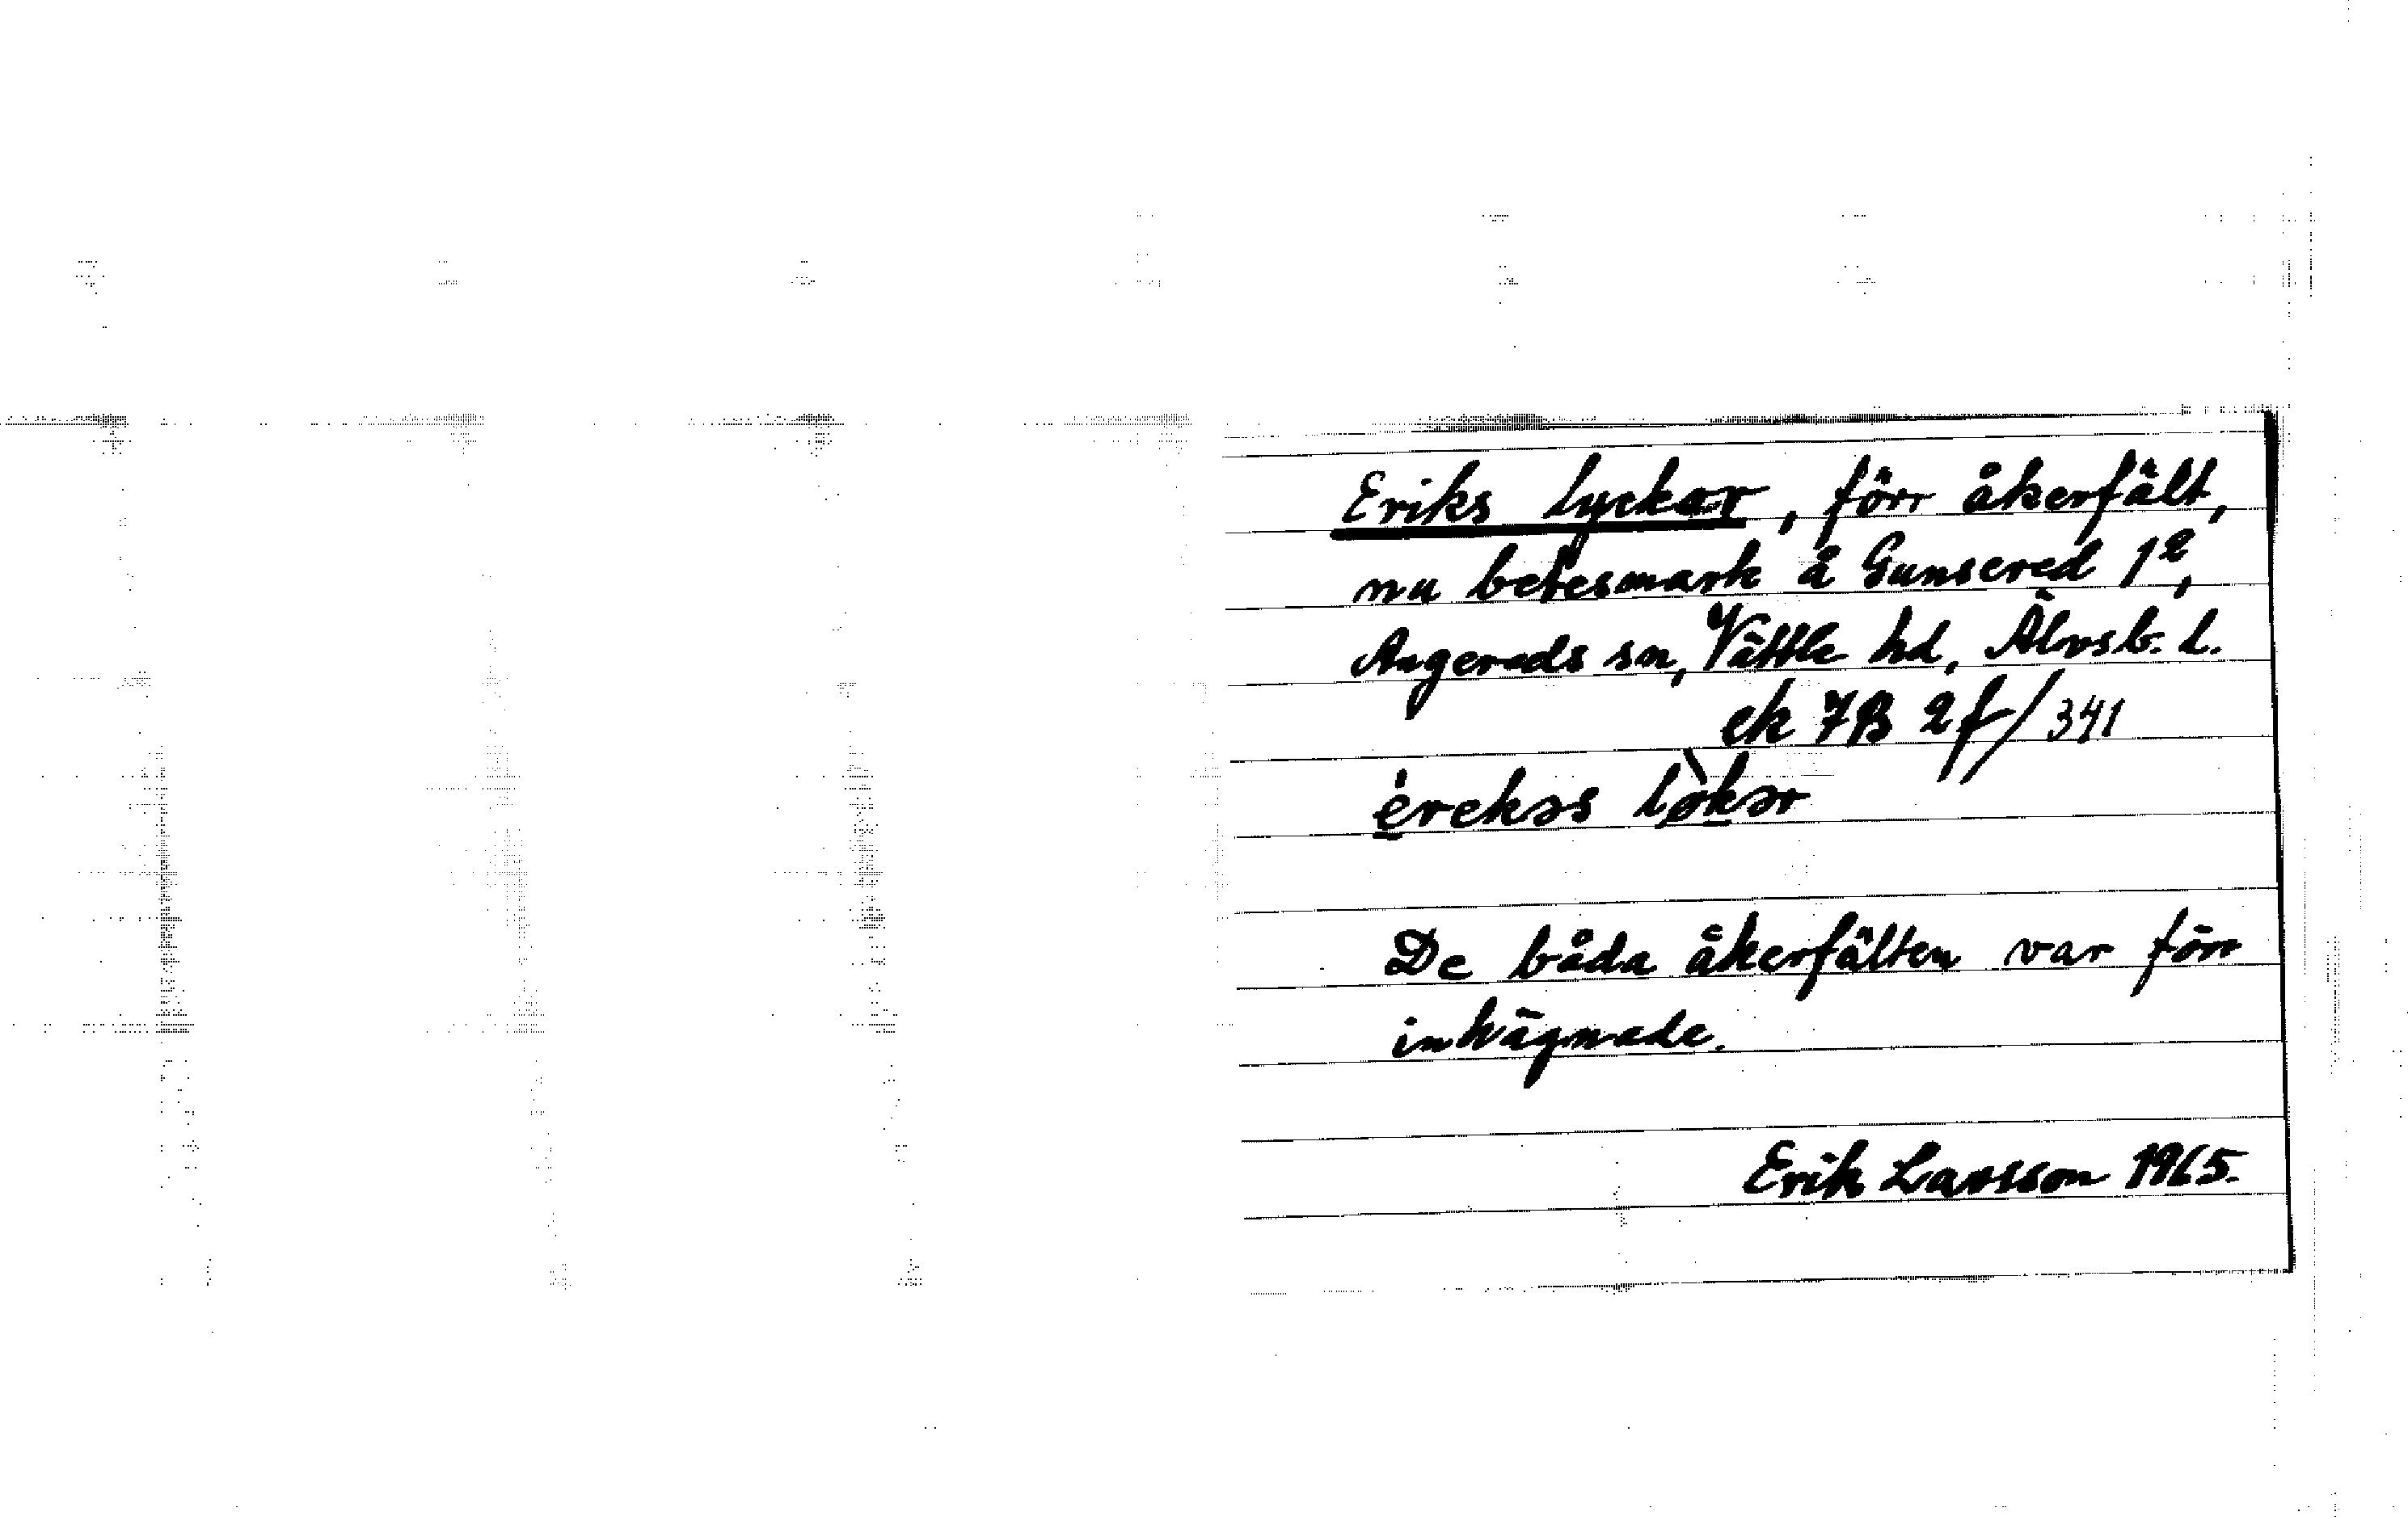 Eriks lyckor, förr åkerfält,
nu betesmark å Gunsered 1²,
Angereds sn, Vättle hd, Älvsb. l.
ek 7B 2f/341
èrekəs lø̀kər
De båda åkerfälten var förr
inhägnade.
Erik Larsson 1965.